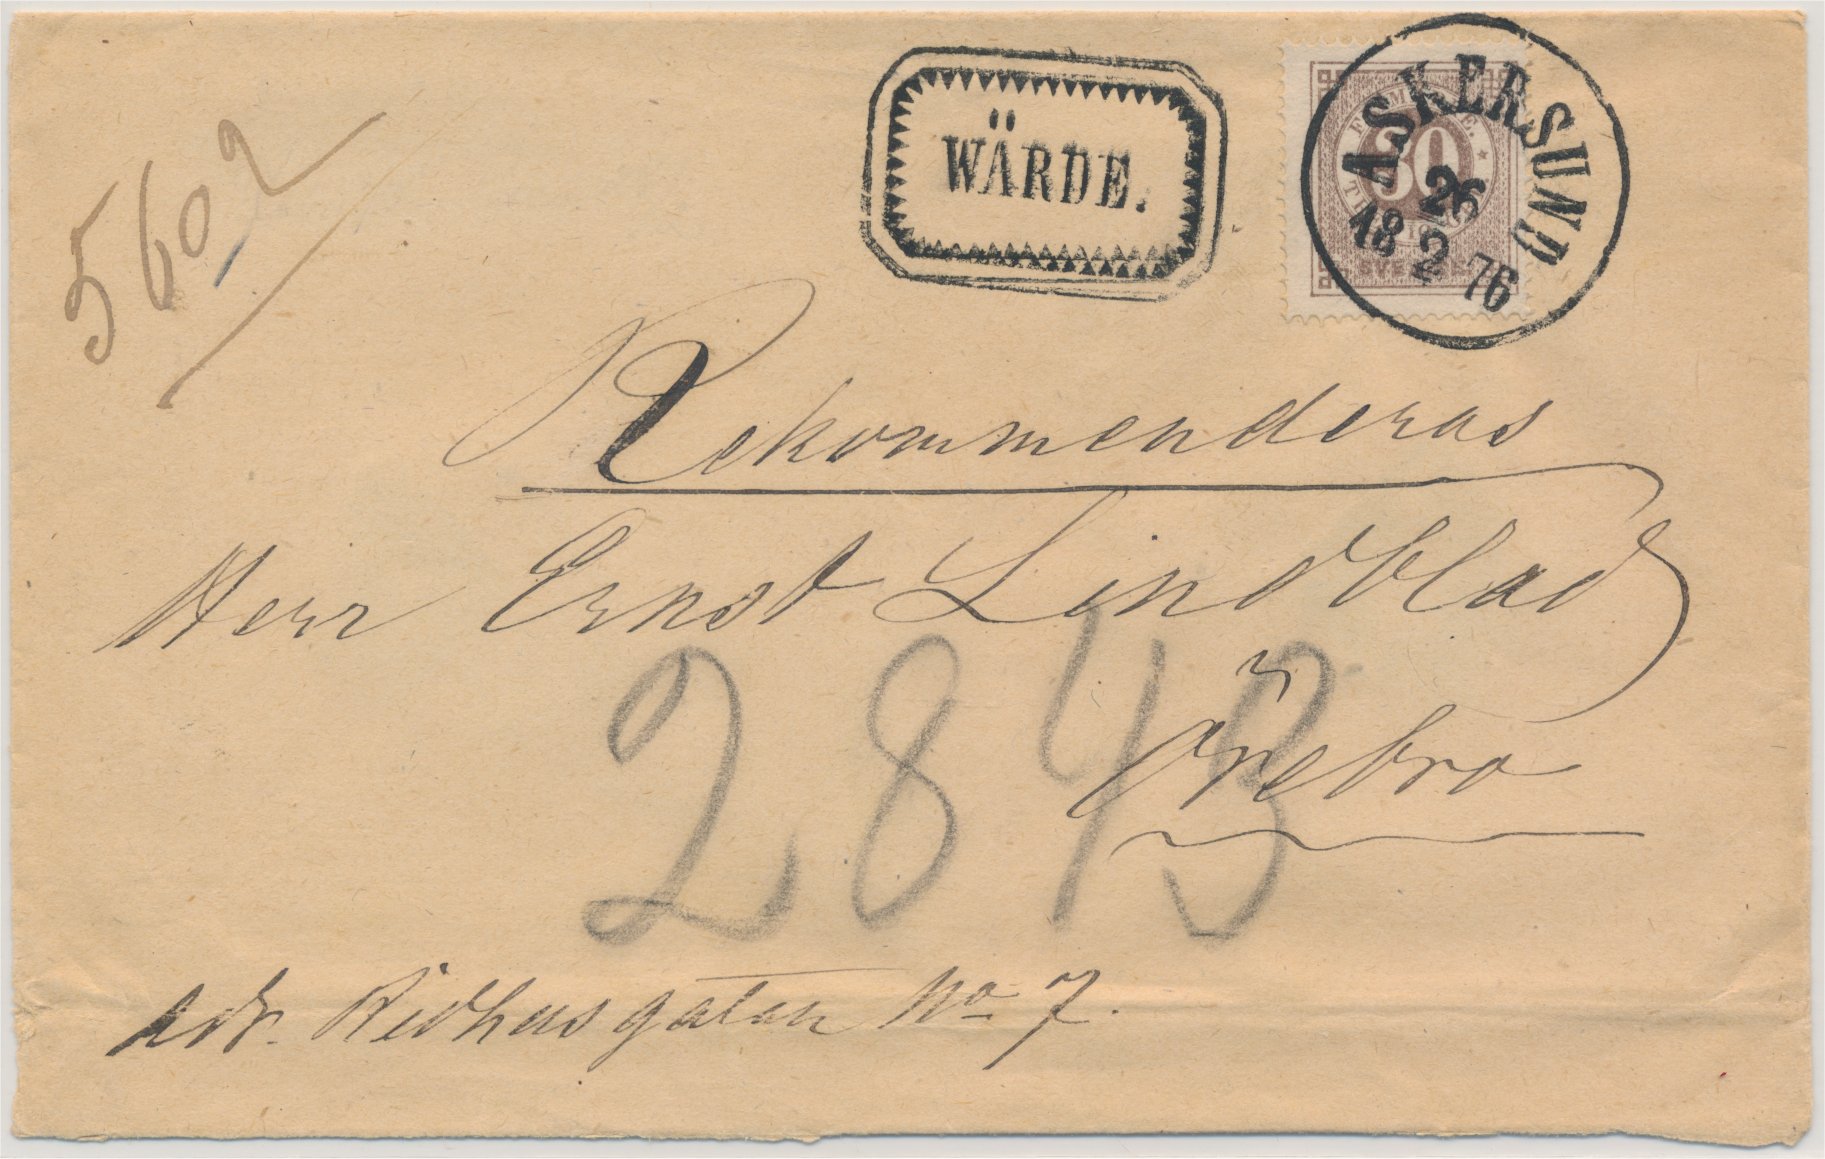 5602
WÄRDE.
ASKERSUND
26
18 2 76
30
SVERIGE
Rekommenderas
Herr Ernst Lindblad
Örebro
2843
adr. Ridhusgatan No 7.